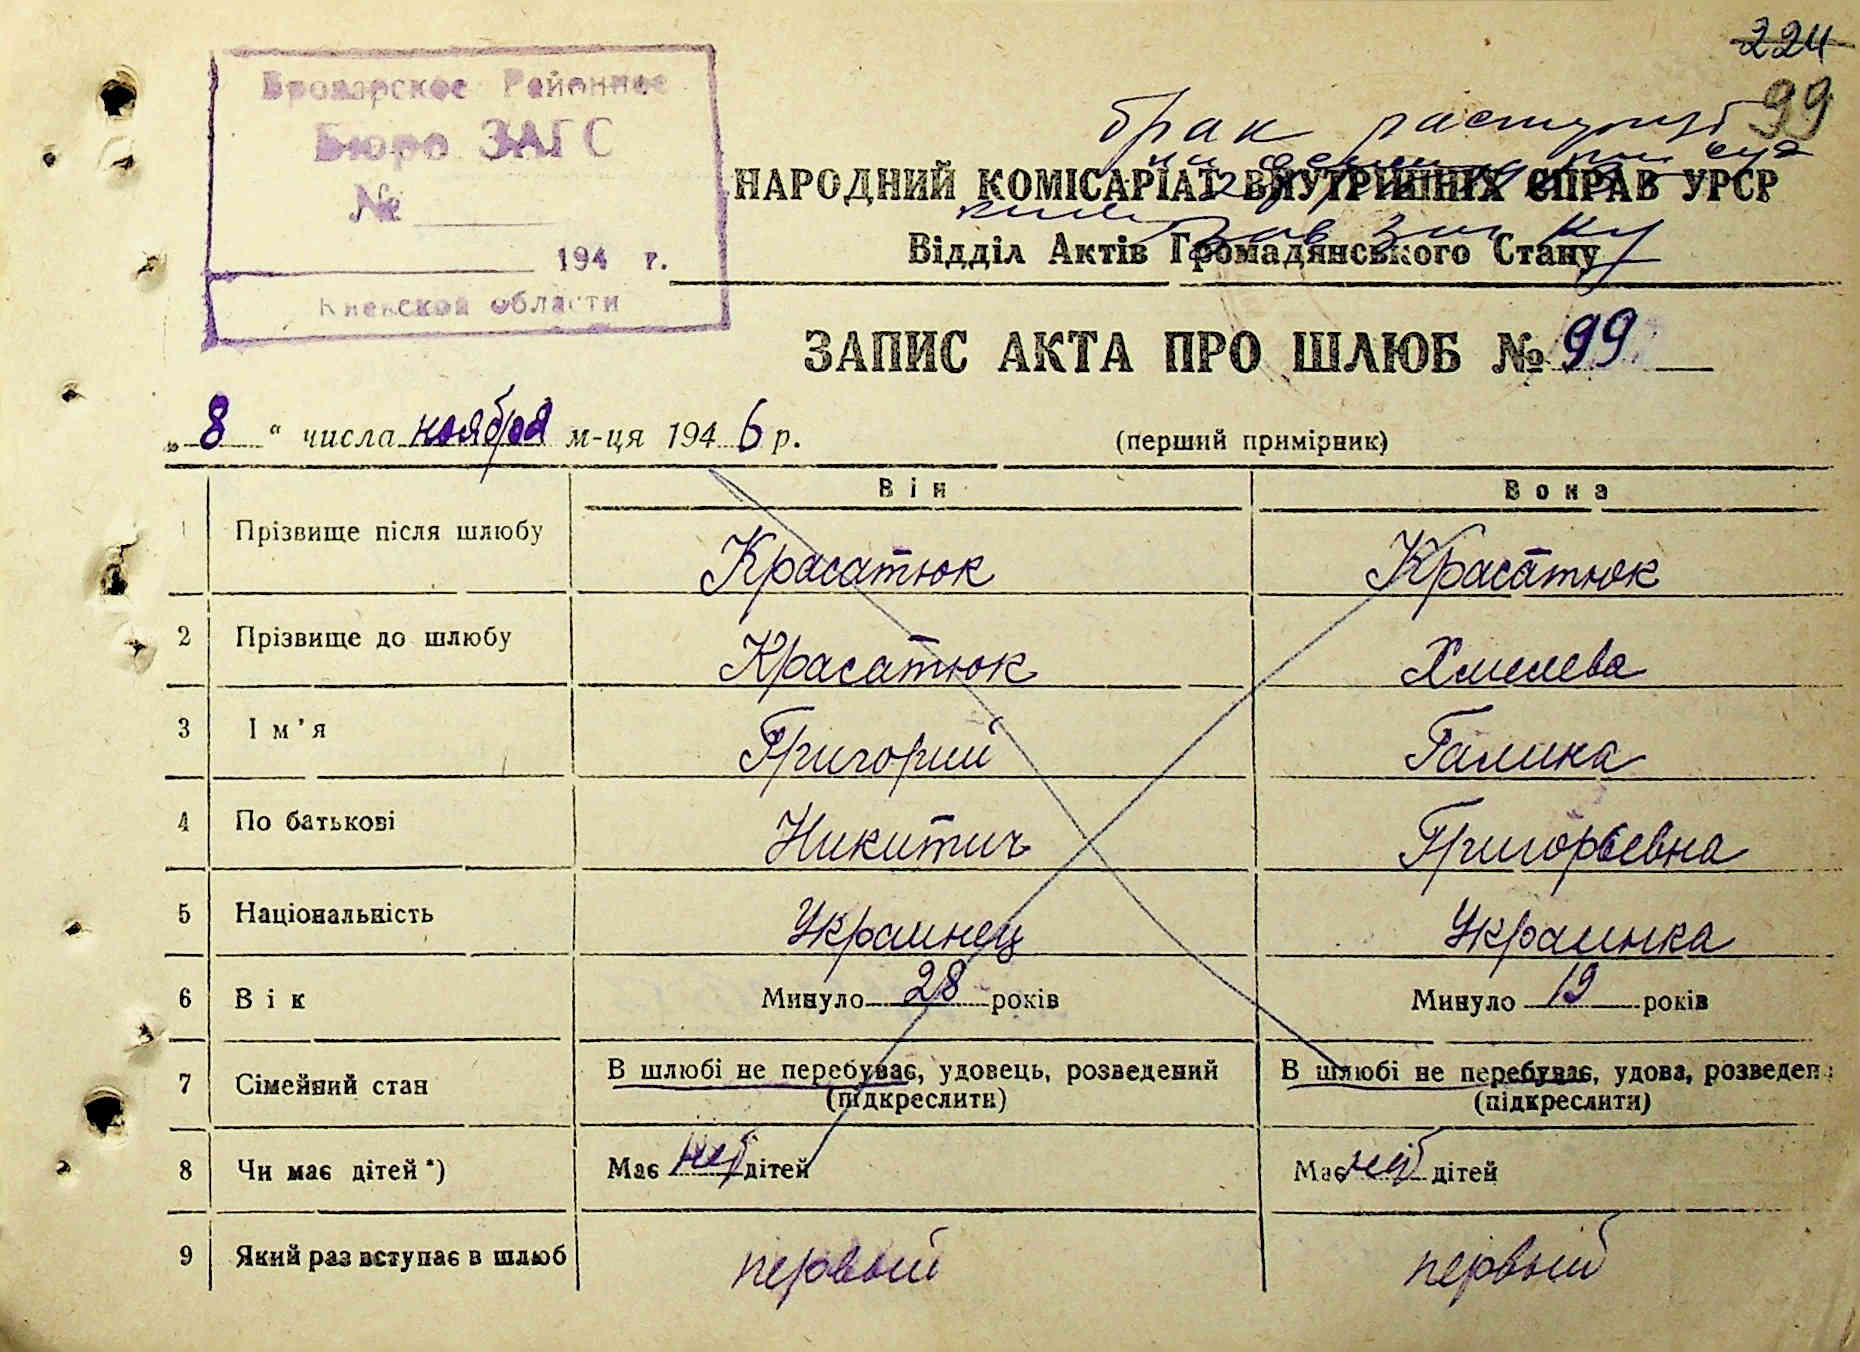 224
99
Броварское Районное
Бюро ЗАГС
№
194 г.
Киевской области
брак
НАРОДНИЙ КОМІСАРІАТ ВНУТРІШНІХ СПРАВ УРСР
Відділ Актів Громадянського Стану
ЗАПИС АКТА ПРО ШЛЮБ № 99
„ 8 “ числа ноября м-ця 1946 р. (перший примірник)
Він Вона
1 Прізвище після шлюбу Красатюк Красатюк
2 Прізвище до шлюбу Красатюк Хмелева
3 Ім'я Григорий Галина
4 По батькові Никитич Григорьевна
5 Національність Украинец Украинка
6 Вік Минуло 28 років Минуло 19 років
7 Сімейний стан В шлюбі не перебуває, удовець, розведений В шлюбі не перебуває, удова, розведен
(підкреслити) (підкреслити)
8 Чи має дітей *) Має нет дітей Має нет дітей
9 Який раз вступає в шлюб первый первый